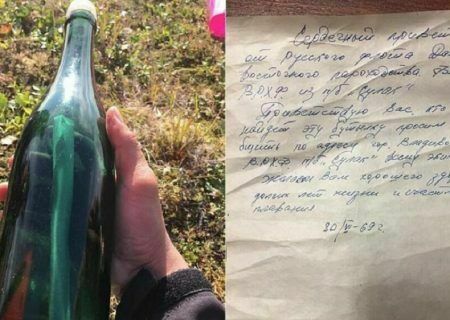 Сердечный привет
от русского флота Даль
восточного пароходства
ВРХФ из п/б "Сулак"
Приветствую Вас, кто
найдет эту бутылку просим
по адресу гор. Владив
ВРХФ п/б "Сулак"
Желаем Вам хорошего здо
долгих лет жизни и счаст
плавания
-69 г.